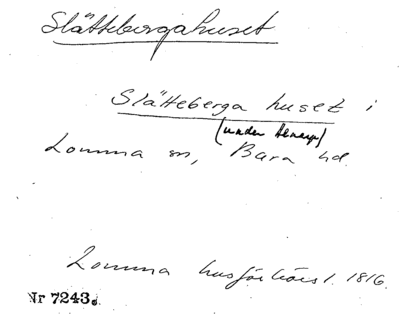 Slättebergahuset
Slätteberga huset i
(under Alnarp)
Lomma sn, Bara hd.
Lomma husförhörsl. 1816.
Nr 7243.